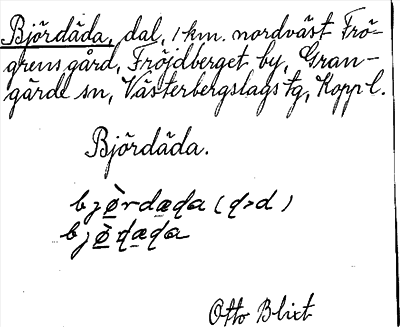 Björdäda, dal, 1 km. nordväst Frö-
grens gård, Fröjdberget by, Gran-
gärde sn, Västerbergslags tg, Koppl.
Björdäda.
bjørdæda (d>d)
bjø̀dæda
Otto Blixt